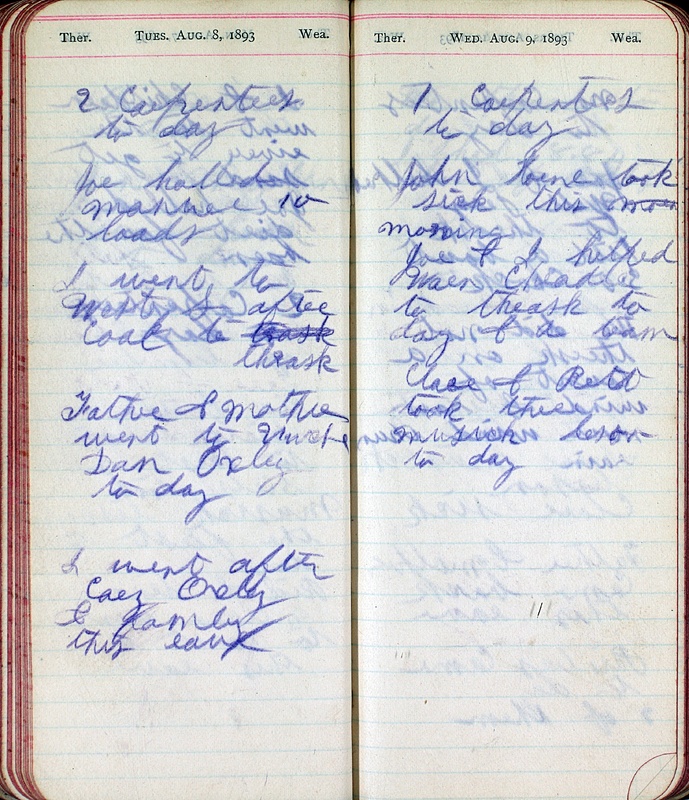 Ther. TUES. AUG. 8, 1893 Wea.
2 Carpenters
to day
Joe halled
manuee 10
loads
I went to
West L aftee
Coal to trask
thrask
Father & Mother
went to Uncle
Dan Oxley
to day
I went after
Oxley
& family
this eav
Ther. WED. AUG. 9, 1893 Wea.
1 Carpenters
to day
John took
sick this mor
morning
Joe & I helped
Chadle
to thrask to
day team
Clace &
took thier
musick leson
to day